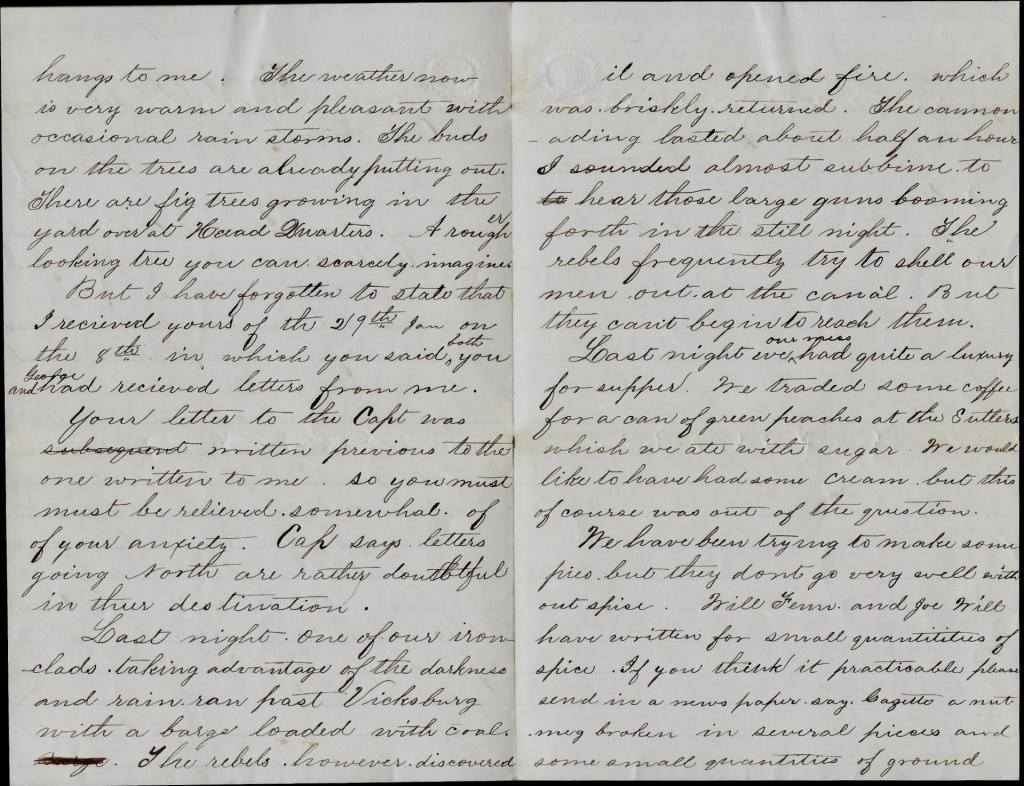 hangs to me. The weather now
is very warm and pleasant with
occasional rain storms. The buds
on the trees are already putting out.
There are fig trees growing in the
yard over at Head Quarters. A rougher
looking tree you can scarcely imagine.
But I have forgotten to state that
I recieved yours of th 29th Jan on
the 8th in which you said both you
and George had recieved letters from me.
Your letter to the Capt was
subsequent written previous to the
one written to me. so you must
must be relieved somewhat of
of your anxiety. Cap says letters
going North are rather doubtful
in thier destination.
Last night one of our iron-
-clads taking advantage of the darkness
and rain ran past Vicksburg
with a barge loaded with coal.
barge. The rebels however discovered
it and opened fire. which
was briskly returned. The cannon
-ading lasted about half an hour
I sounded almost sublime to
to hear those large guns booming
forth in the still night. The
rebels frequently try to shell our
men out at the canal. But
they can't begin to reach them.
Last night eve, our mess had quite a luxury
for supper. We traded some coffee
for a can of green peaches at the Sutlers
which we ate with sugar. We would
like to have had some cream but this
of course was out of the question.
We have been trying to make some
pies but they dont go very well with
out spise. Will Fenn and Joe Will
have written for small quantitities of
spice. If you think it practicable please
send in a news paper say Gazette a nut
meg broken in several pieces and
some small quantities of ground